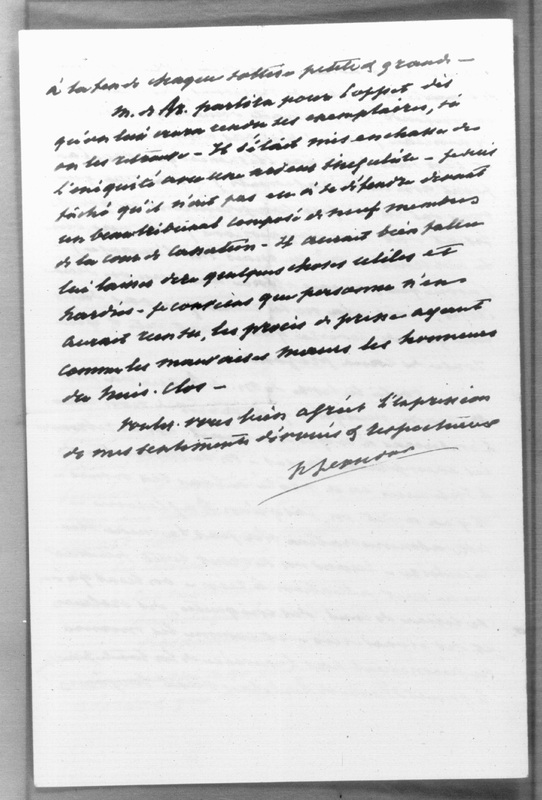 à la tête de chaque sottise petite & grande —
M. de Az. partira pour l'appet dès
qu'on lui aura rendu ses exemplaires, si
on les retrouve — Il s'était mis en chasse de
l'iniquité avec une ardeur singulière — je suis
fâché qu'il n'ait pas eu à se défendre devant
un beau tribunal composé de neuf membres
de la cour de Cassation — Il aurait bien fallu
lui laisser dire quelques choses utiles et
hardies — je conviens que personne n'en
aurait rendu, les procès de presse ayant
comme les mauvaises moeurs les honneurs
du huis-clos —
Veuillez vous bien agréer l'expression
de mes sentiments dévoués & respectueux